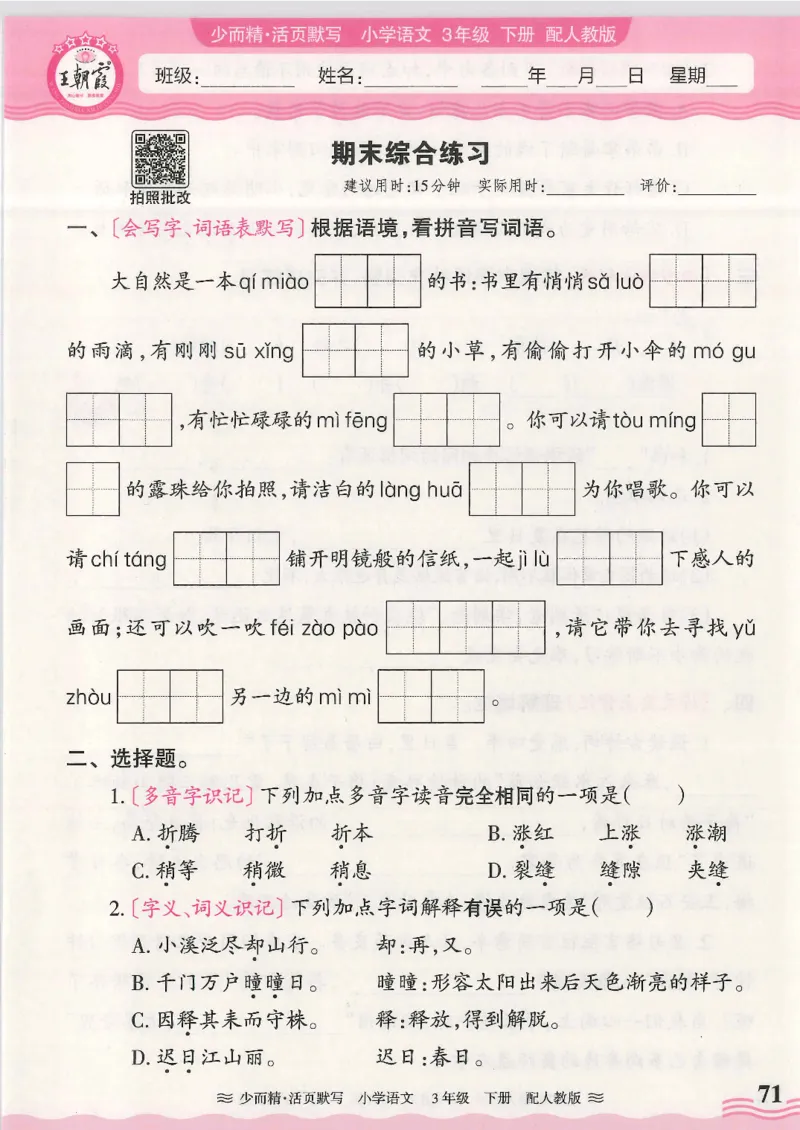 少而精·活页默写 小学语文 3年级 下册 配人教版
王朝霞
班级:__________ 姓名:__________ _____年___月___日 星期___
拍照批改
期末综合练习
建议用时:15分钟 实际用时:________ 评价:________
一、〔会写字、词语表默写〕根据语境,看拼音写词语。
大自然是一本qí miào 的书:书里有悄悄sǎ luò
的雨滴,有刚刚 sū xǐng 的小草,有偷偷打开小伞的 mó gu
,有忙忙碌碌的mì fēng 。你可以请tòu míng
的露珠给你拍照,请洁白的làng huā 为你唱歌。你可以
请chí táng 铺开明镜般的信纸,一起jì lù 下感人的
画面;还可以吹一吹féi zào pào ,请它带你去寻找yǔ
zhòu 另一边的mì mì 。
二、选择题。
1.〔多音字识记〕下列加点多音字读音完全相同的一项是( )
A. 折腾 打折 折本 B. 涨红 上涨 涨潮
C. 稍等 稍微 稍息 D. 裂缝 缝隙 夹缝
2.〔字义、词义识记〕下列加点字词解释有误的一项是( )
A. 小溪泛尽却山行。 却:再,又。
B. 千门万户曈曈日。 曈曈:形容太阳出来后天色渐亮的样子。
C. 因释其耒而守株。 释:释放,得到解脱。
D. 迟日江山丽。 迟日:春日。
少而精·活页默写 小学语文 3年级 下册 配人教版
71